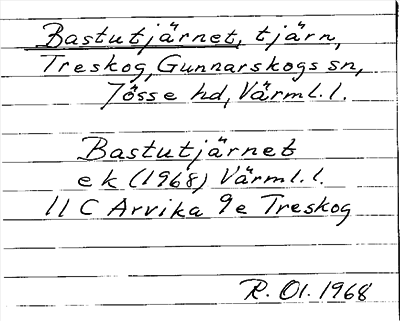 Bastutjärnet, tjärn,
Treskog, Gunnarskogs sn,
Jösse hd, Värml. l.
Bastutjärnet
ek (1968) Värml. l.
11 C Arvika 9e Treskog
R. Ol. 1968